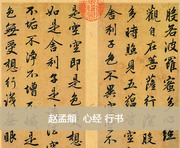 般若波羅蜜多
觀自在菩薩行
多時照見五
舍利子色不異空
是空空即是
舍利子是
不垢不淨不增
色無受想行識
赵孟頫 心经 行书